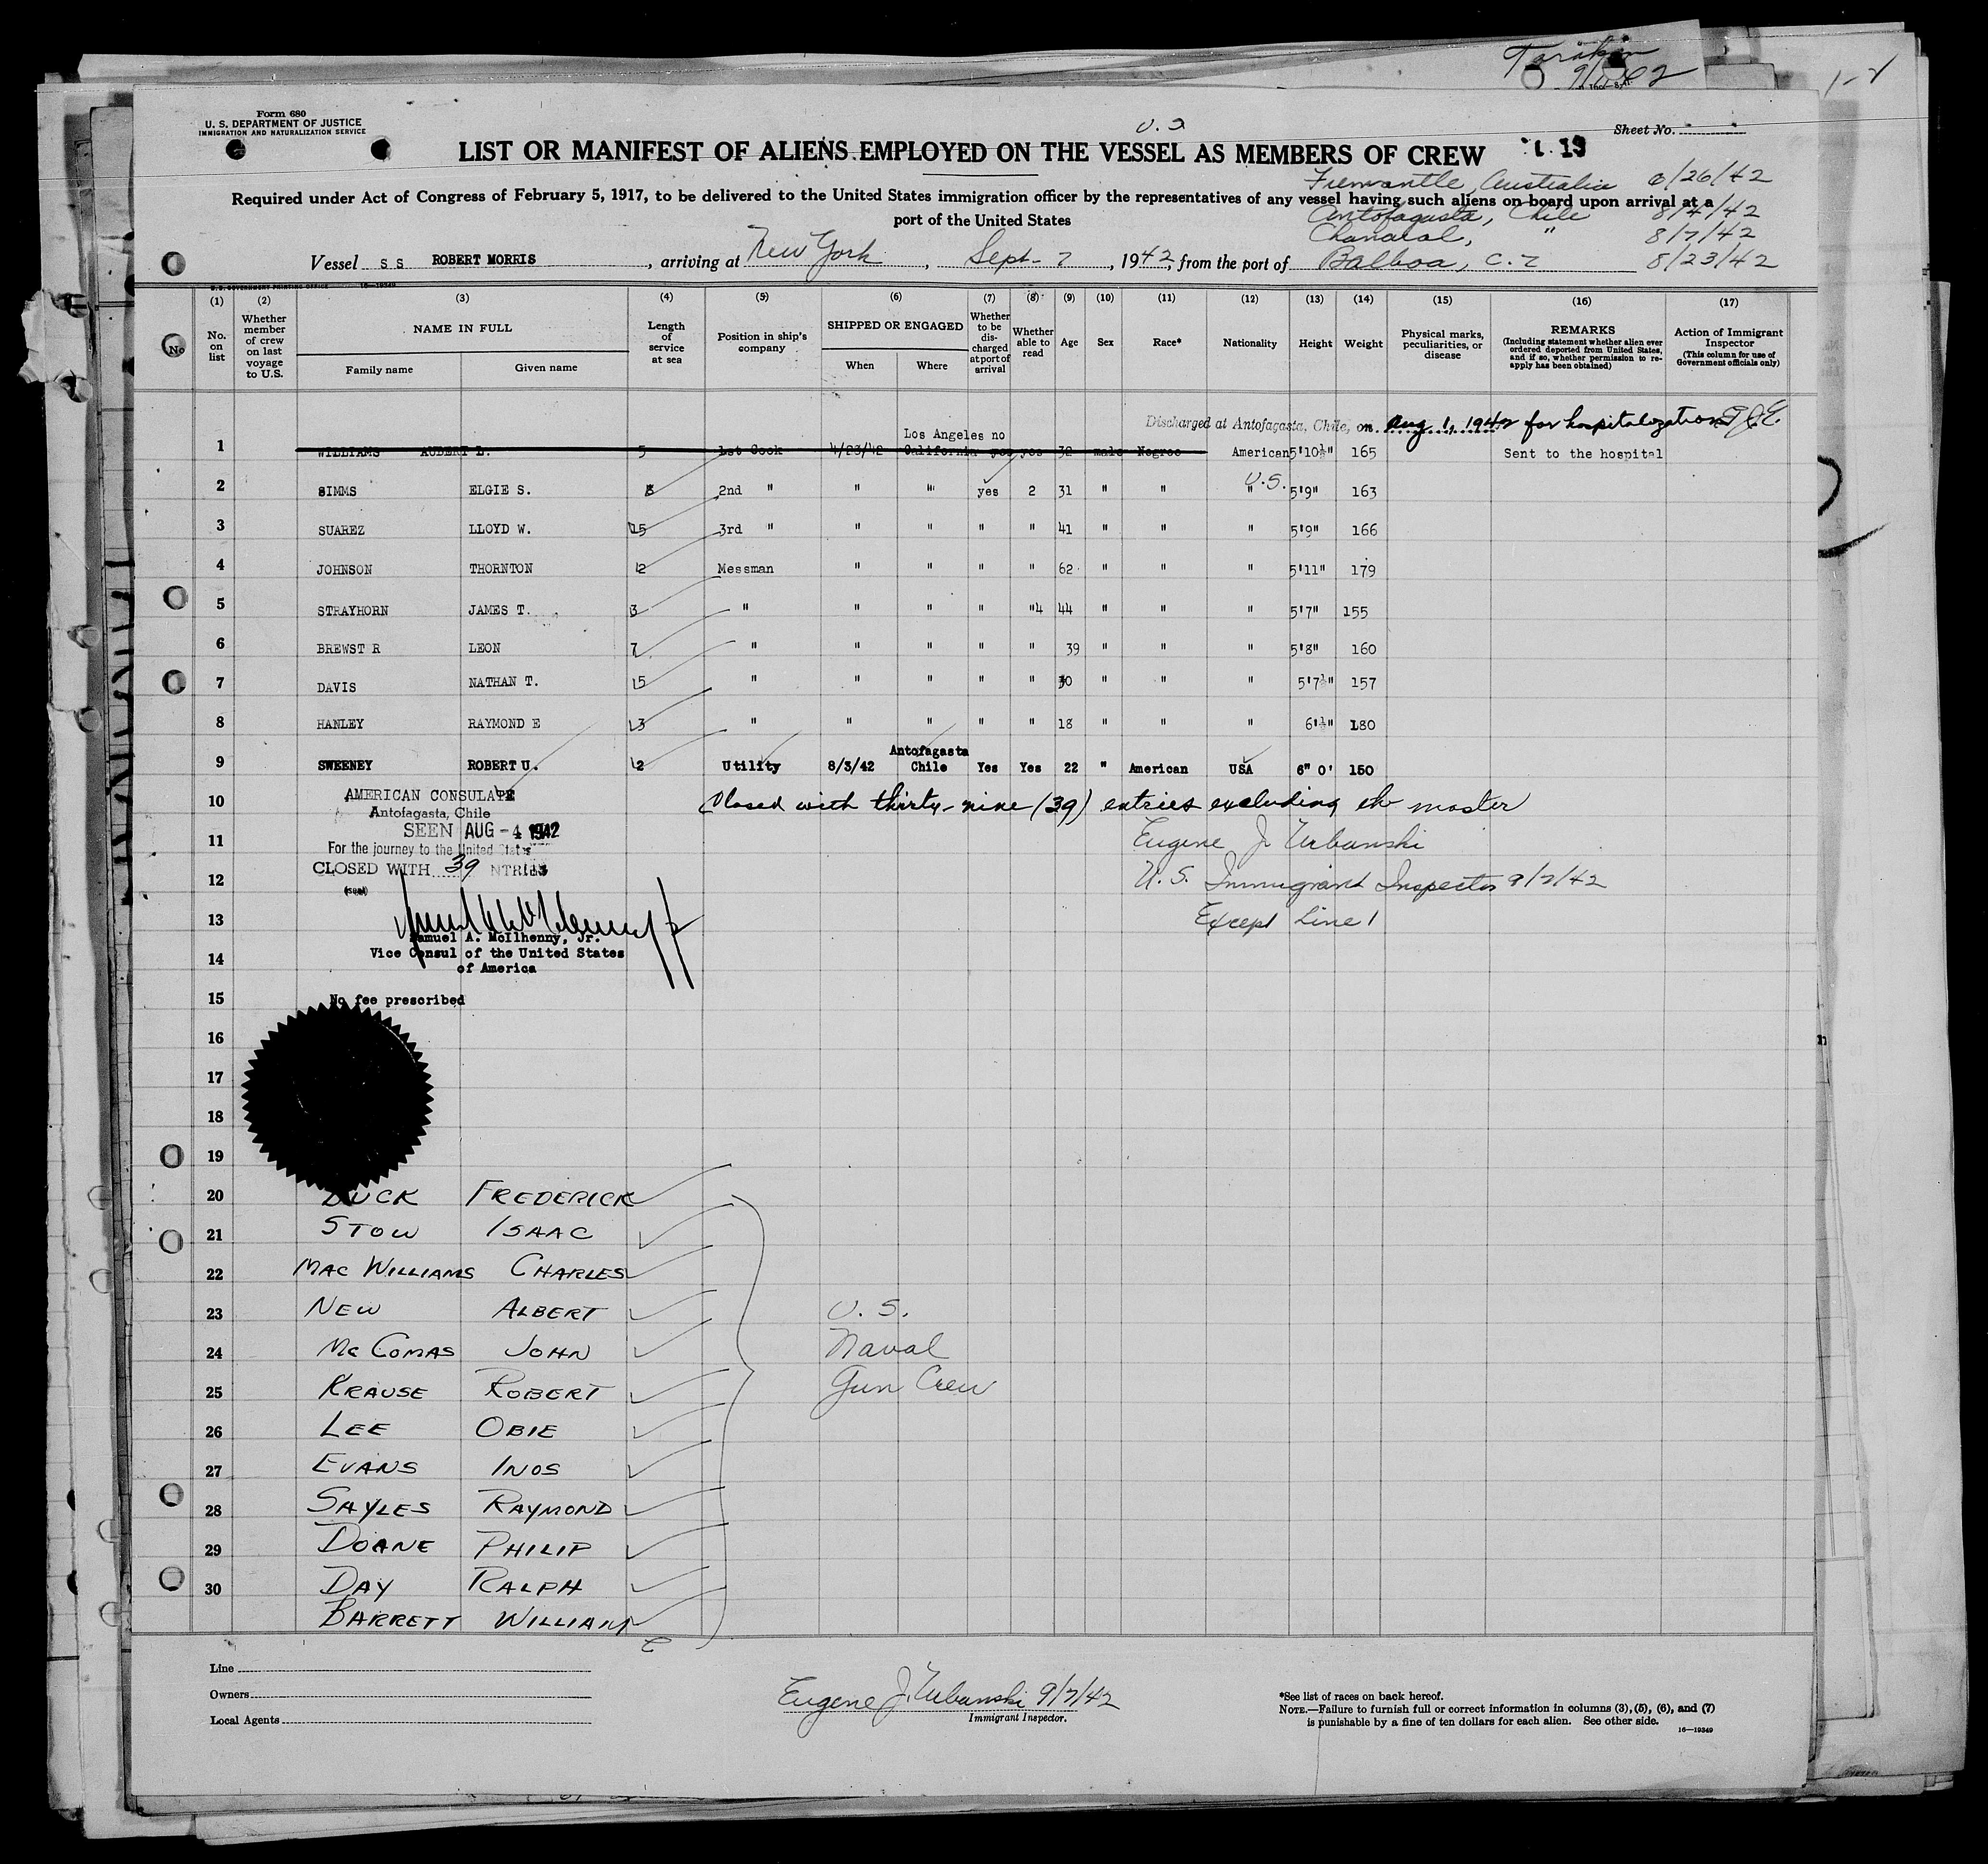 9/ /42
1-2
Form 680
U. S. DEPARTMENT OF JUSTICE
IMMIGRATION AND NATURALIZATION SERVICE
Sheet No.
U. S.
LIST OR MANIFEST OF ALIENS EMPLOYED ON THE VESSEL AS MEMBERS OF CREW
Fremantle, Australia 6/26/42
Required under Act of Congress of February 5, 1917, to be delivered to the United States immigration officer by the representatives of any vessel having such aliens on board upon arrival at a
port of the United States
Antofagasta, Chile 8/4/42
Chanaral, " 8/7/42
Vessel SS ROBERT MORRIS, arriving at New York, Sept- 7, 1942, from the port of Balboa, C.Z 8/23/42
U.S. GOVERNMENT PRINTING OFFICE 16—19349
(1) (2) (3) (4) (5) (6) (7) (8) (9) (10) (11) (12) (13) (14) (15) (16) (17)
No. on list
Whether member of crew on last voyage to U.S.
NAME IN FULL
Family name Given name
Length of service at sea
Position in ship's company
SHIPPED OR ENGAGED
When Where
Whether to be discharged at port of arrival
Whether able to read
Age
Sex
Race*
Nationality
Height
Weight
Physical marks, peculiarities, or disease
REMARKS
(Including statement whether alien ever ordered deported from United States, and if so, whether permission to reapply has been obtained)
Action of Immigrant Inspector
(This column for use of Government officials only)
No
Discharged at Antofagasta, Chile, on Aug 1, 1942 for hospitalization
Los Angeles no
1 WILLIAMS AUBERT L. 5 1st Cook 4/23/42 California yes yes 32 male Negroe American 5'10½" 165 Sent to the hospital
U.S.
2 SIMMS ELGIE S. 2nd " " " yes 2 31 " " " 5'9" 163
3 SUAREZ LLOYD W. 15 3rd " " " " " 41 " " " 5'9" 166
4 JOHNSON THORNTON 2 Messman " " " " 62 " " " 5'11" 179
5 STRAYHORN JAMES T. 3 " " " " "4 44 " " " 5'7" 155
6 BREWST R LEON 7 " " " " " 39 " " " 5'8" 160
7 DAVIS NATHAN T. 5 " " " " " 30 " " " 5'7½" 157
8 HANLEY RAYMOND E 3 " " " " " 18 " " " 6'½" 180
Antofagasta
9 SWEENEY ROBERT U. 2 Utility 8/3/42 Chile Yes Yes 22 " American USA 6" 0' 150
10 AMERICAN CONSULATE Closed with thirty-nine (39) entries excluding the master
Antofagasta, Chile
SEEN AUG -4 1942
11 For the journey to the United States Eugene J. Urbanski
CLOSED WITH 39 NTRIES
12 U. S. Immigrant Inspector 9/7/42
(seal)
13 Except Line 1
Samuel A. McIlhenny, Jr.
14 Vice Consul of the United States
of America
15 No fee prescribed
16
17
18
19
20 DUCK FREDERICK
21 STOW ISAAC
22 MAC WILLIAMS CHARLES
23 NEW ALBERT U. S.
24 Mc COMAS JOHN Naval
25 KRAUSE ROBERT Gun Crew
26 LEE OBIE
27 EVANS INOS
28 SAYLES RAYMOND
29 DOANE PHILIP
30 DAY RALPH
BARRETT WILLIAM
Line
Owners
Local Agents
Eugene J. Urbanski 9/7/42
Immigrant Inspector.
*See list of races on back hereof.
NOTE.—Failure to furnish full or correct information in columns (3), (5), (6), and (7)
is punishable by a fine of ten dollars for each alien. See other side.
16—19349